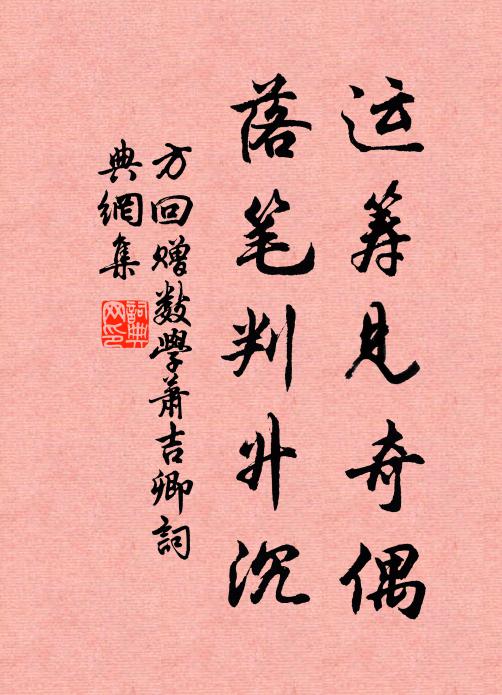 运筹见奇偶
落笔判升沉
方回赠数学萧吉卿词
典網集
詞典网印